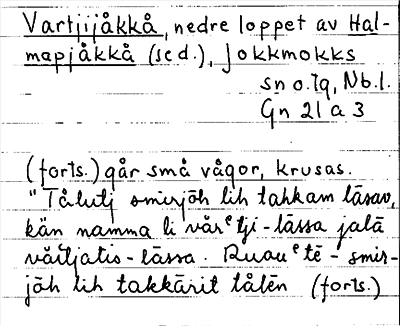 Vartjijåkkå, nedre loppet av Hal-
mapjåkkå (se d.), Jokkmokks
sn o. tg, Nb. l.
Gn 21 a 3
(forts.) går små vågor, krusas.
"Tålutj smirjōh lih tahkam låsav,
kän namma li vår e tji-låssa jalā
- låssa.
jōh lih takkārit tålēn (forts.)